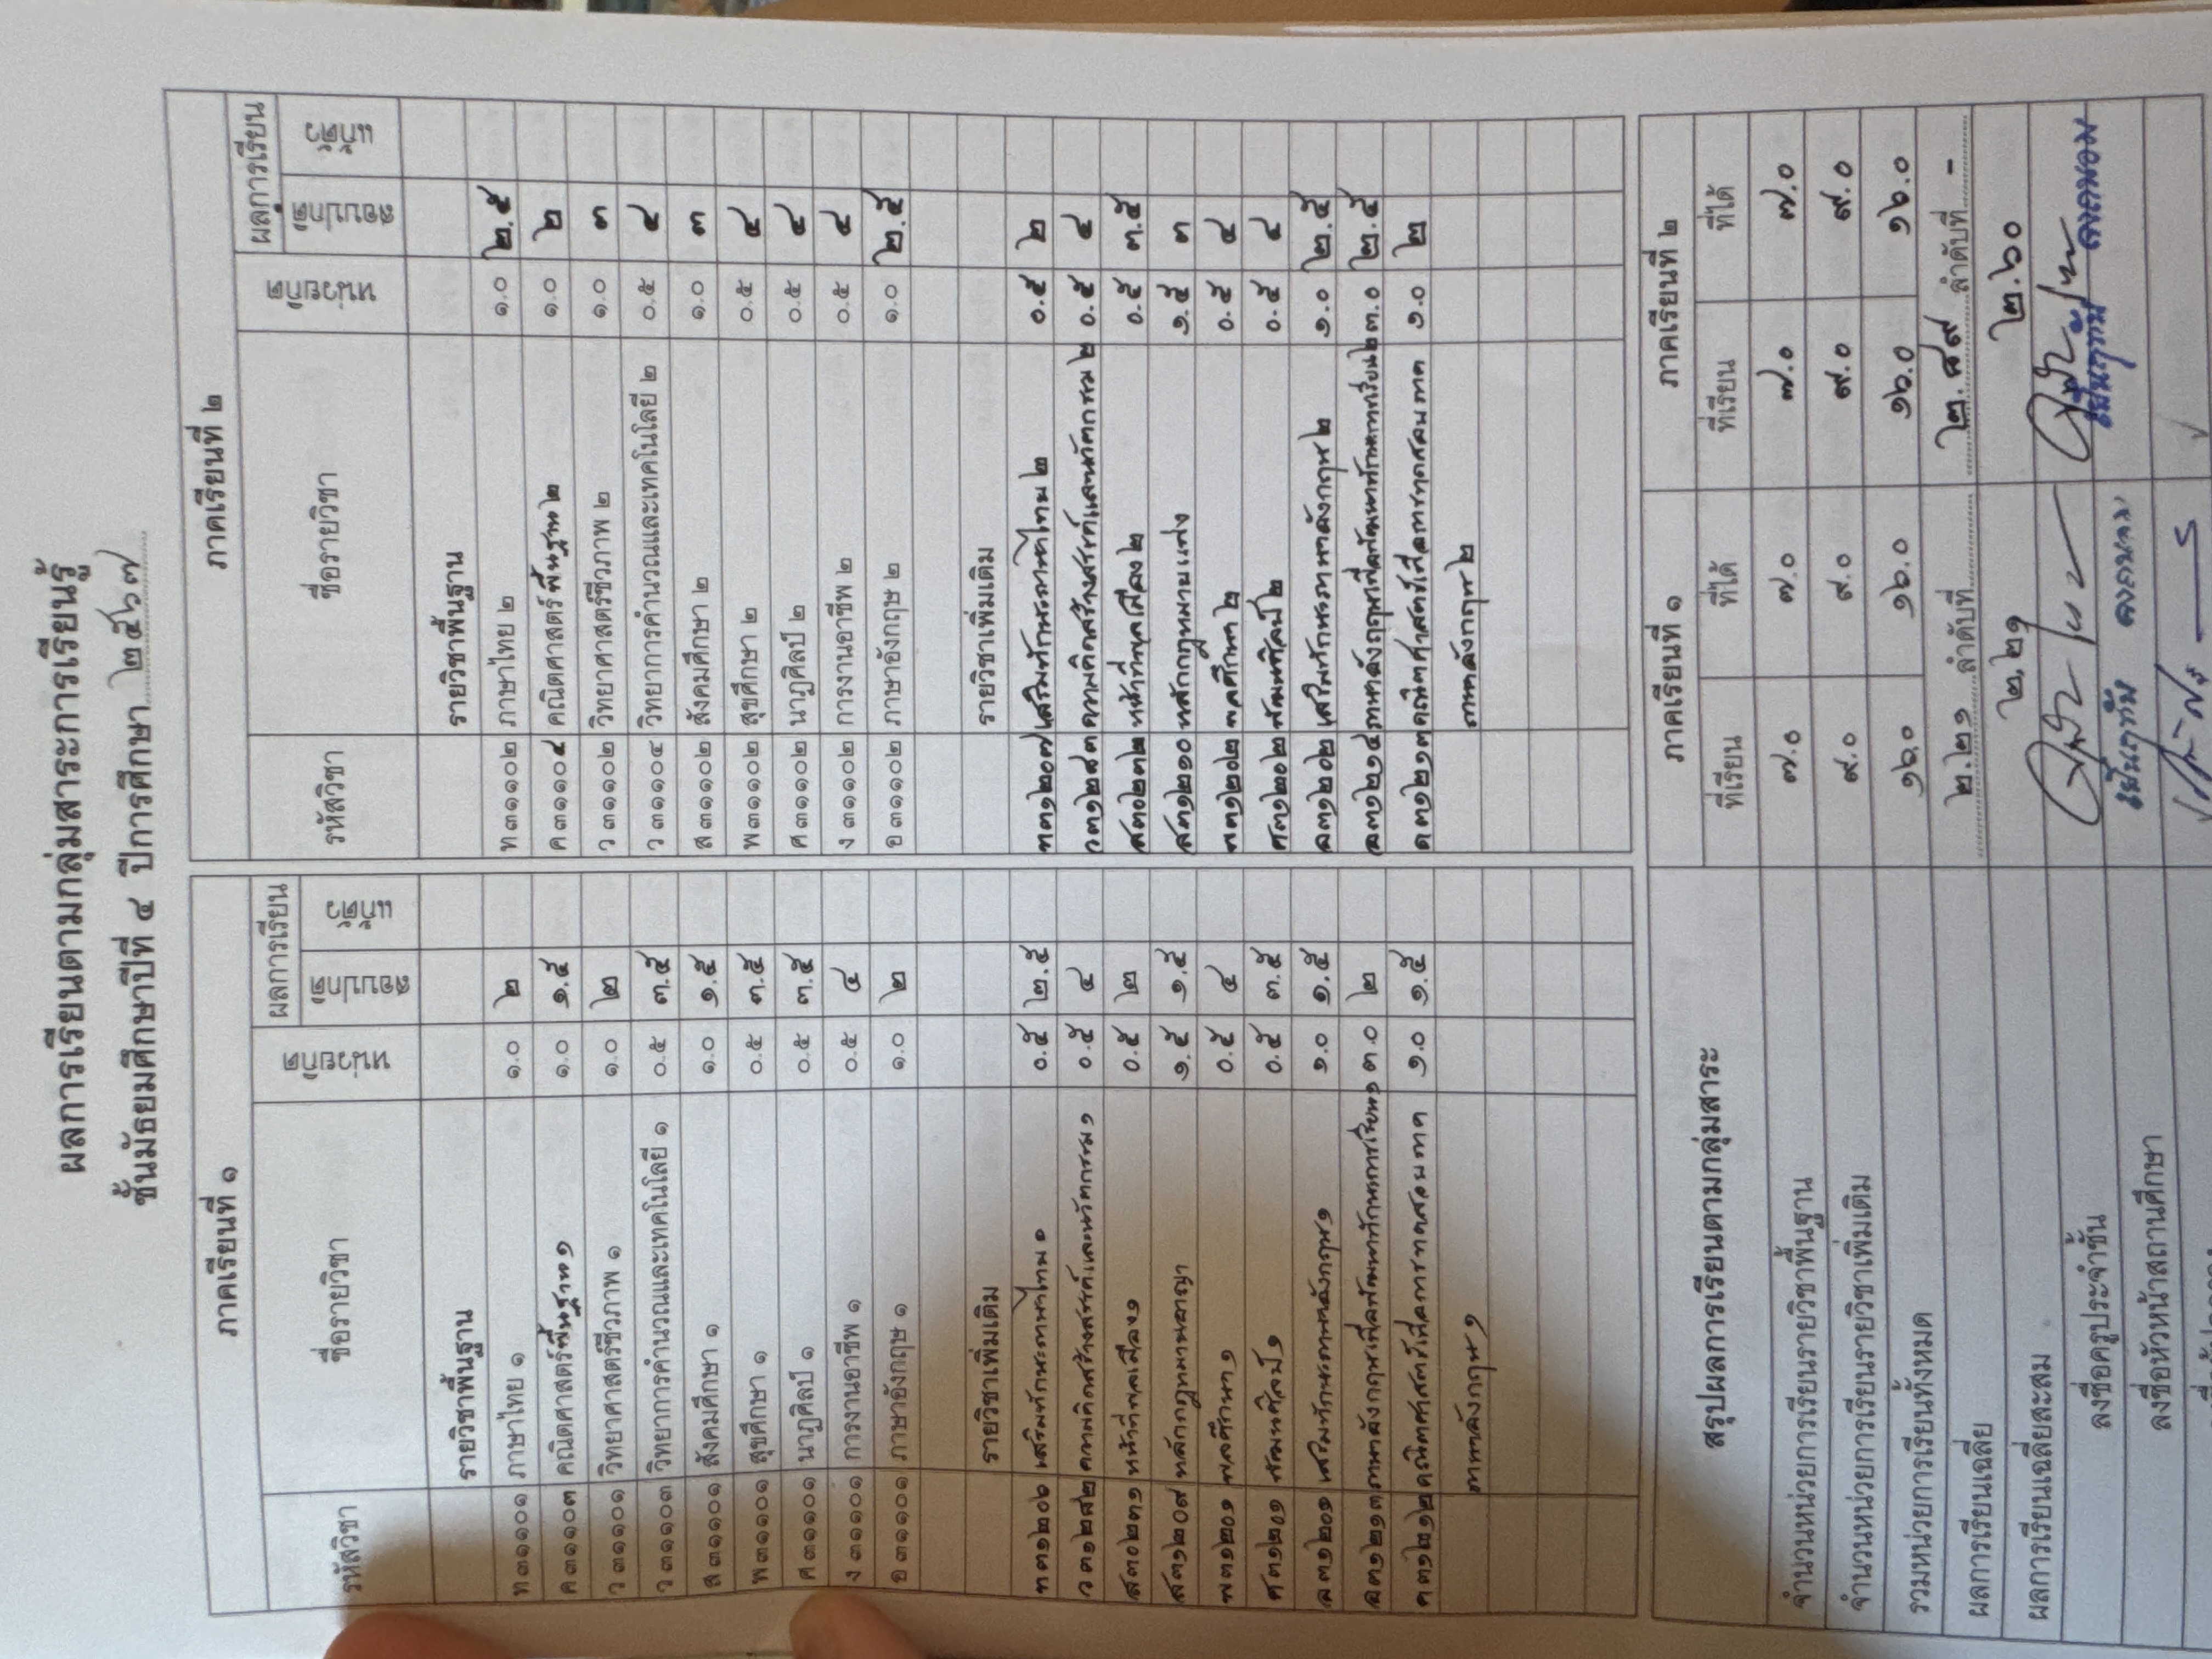 ผลการเรียนตามกลุ่มสาระการเรียนรู้
ชั้นมัธยมศึกษาปีที่ ๔ ปีการศึกษา ๒๕๖๗
ภาคเรียนที่ ๑
รหัสวิชา ชื่อรายวิชา หน่วยกิต ผลการเรียน
สอบปกติ แก้ตัว
รายวิชาพื้นฐาน
ท๓๑๑๐๑ ภาษาไทย ๑ ๑.๐ ๒
ค๓๑๑๐๓ คณิตศาสตร์พื้นฐาน ๑ ๑.๐ ๑.๕
ว๓๑๑๐๑ วิทยาศาสตร์ชีวภาพ ๑ ๑.๐ ๒
ว๓๑๑๐๓ วิทยาการคำนวณและเทคโนโลยี ๑ ๐.๕ ๓.๕
ส๓๑๑๐๑ สังคมศึกษา ๑ ๑.๐ ๑.๕
พ๓๑๑๐๑ สุขศึกษา ๑ ๐.๕ ๓.๕
ศ๓๑๑๐๑ นาฏศิลป์ ๑ ๐.๕ ๓.๕
ง๓๑๑๐๑ การงานอาชีพ ๑ ๐.๕ ๔
อ๓๑๑๐๑ ภาษาอังกฤษ ๑ ๑.๐ ๒
รายวิชาเพิ่มเติม
ท๓๑๒๐๖ เสริมทักษะภาษาไทย ๑ ๐.๕ ๒.๕
ว๓๑๒๘๒ ความคิดสร้างสรรค์และนวัตกรรม ๑ ๐.๕ ๔
ส๓๐๒๓๑ หน้าที่พลเมือง ๑ ๐.๕ ๒
ส๓๑๒๐๙ หลักกฎหมายอาญา ๑.๕ ๑.๕
พ๓๑๒๐๑ พลศึกษา ๑ ๐.๕ ๔
ศ๓๑๒๐๑ พัฒนศิลป์ ๑ ๐.๕ ๓.๕
อ๓๑๒๐๑ เสริมทักษะภาษาอังกฤษ ๑ ๑.๐ ๑.๕
อ๓๑๒๑๓ ภาษาอังกฤษเพื่อพัฒนาทักษะการเรียน ๑ ๓.๐ ๒
ค๓๑๒๑๒ คณิตศาสตร์เพื่อการทดสอบภาค ๑.๐ ๑.๕
ภาษาอังกฤษ ๑
ภาคเรียนที่ ๒
รหัสวิชา ชื่อรายวิชา หน่วยกิต ผลการเรียน
สอบปกติ แก้ตัว
รายวิชาพื้นฐาน
ท๓๑๑๐๒ ภาษาไทย ๒ ๑.๐ ๒.๕
ค๓๑๑๐๔ คณิตศาสตร์พื้นฐาน ๒ ๑.๐ ๒
ว๓๑๑๐๒ วิทยาศาสตร์ชีวภาพ ๒ ๑.๐ ๓
ว๓๑๑๐๔ วิทยาการคำนวณและเทคโนโลยี ๒ ๐.๕ ๔
ส๓๑๑๐๒ สังคมศึกษา ๒ ๑.๐ ๓
พ๓๑๑๐๒ สุขศึกษา ๒ ๐.๕ ๔
ศ๓๑๑๐๒ นาฏศิลป์ ๒ ๐.๕ ๔
ง๓๑๑๐๒ การงานอาชีพ ๒ ๐.๕ ๔
อ๓๑๑๐๒ ภาษาอังกฤษ ๒ ๑.๐ ๒.๕
รายวิชาเพิ่มเติม
ท๓๑๒๐๗ เสริมทักษะภาษาไทย ๒ ๐.๕ ๒
ว๓๑๒๘๓ ความคิดสร้างสรรค์และนวัตกรรม ๒ ๐.๕ ๔
ส๓๐๒๓๒ หน้าที่พลเมือง ๒ ๐.๕ ๓.๕
ส๓๑๒๑๐ หลักกฎหมายแพ่ง ๑.๕ ๓
พ๓๑๒๐๒ พลศึกษา ๒ ๐.๕ ๔
ศ๓๑๒๐๒ พัฒนศิลป์ ๒ ๐.๕ ๔
อ๓๑๒๐๒ เสริมทักษะภาษาอังกฤษ ๒ ๑.๐ ๒.๕
อ๓๑๒๑๔ ภาษาอังกฤษเพื่อพัฒนาทักษะการเรียน ๒ ๓.๐ ๒.๕
ค๓๑๒๑๓ คณิตศาสตร์เพื่อการทดสอบภาค ๑.๐ ๒
ภาษาอังกฤษ ๒
สรุปผลการเรียนตามกลุ่มสาระ ภาคเรียนที่ ๑ ภาคเรียนที่ ๒
ที่เรียน ที่ได้ ที่เรียน ที่ได้
จำนวนหน่วยการเรียนรายวิชาพื้นฐาน ๗.๐ ๗.๐ ๗.๐ ๗.๐
จำนวนหน่วยการเรียนรายวิชาเพิ่มเติม ๙.๐ ๙.๐ ๙.๐ ๙.๐
รวมหน่วยการเรียนทั้งหมด ๑๖.๐ ๑๖.๐ ๑๖.๐ ๑๖.๐
ผลการเรียนเฉลี่ย ๒.๒๑ ลำดับที่ ๒.๙๙ ลำดับที่ -
ผลการเรียนเฉลี่ยสะสม ๒.๒๑ ๒.๖๐
ลงชื่อครูประจำชั้น
ลงชื่อหัวหน้าสถานศึกษา